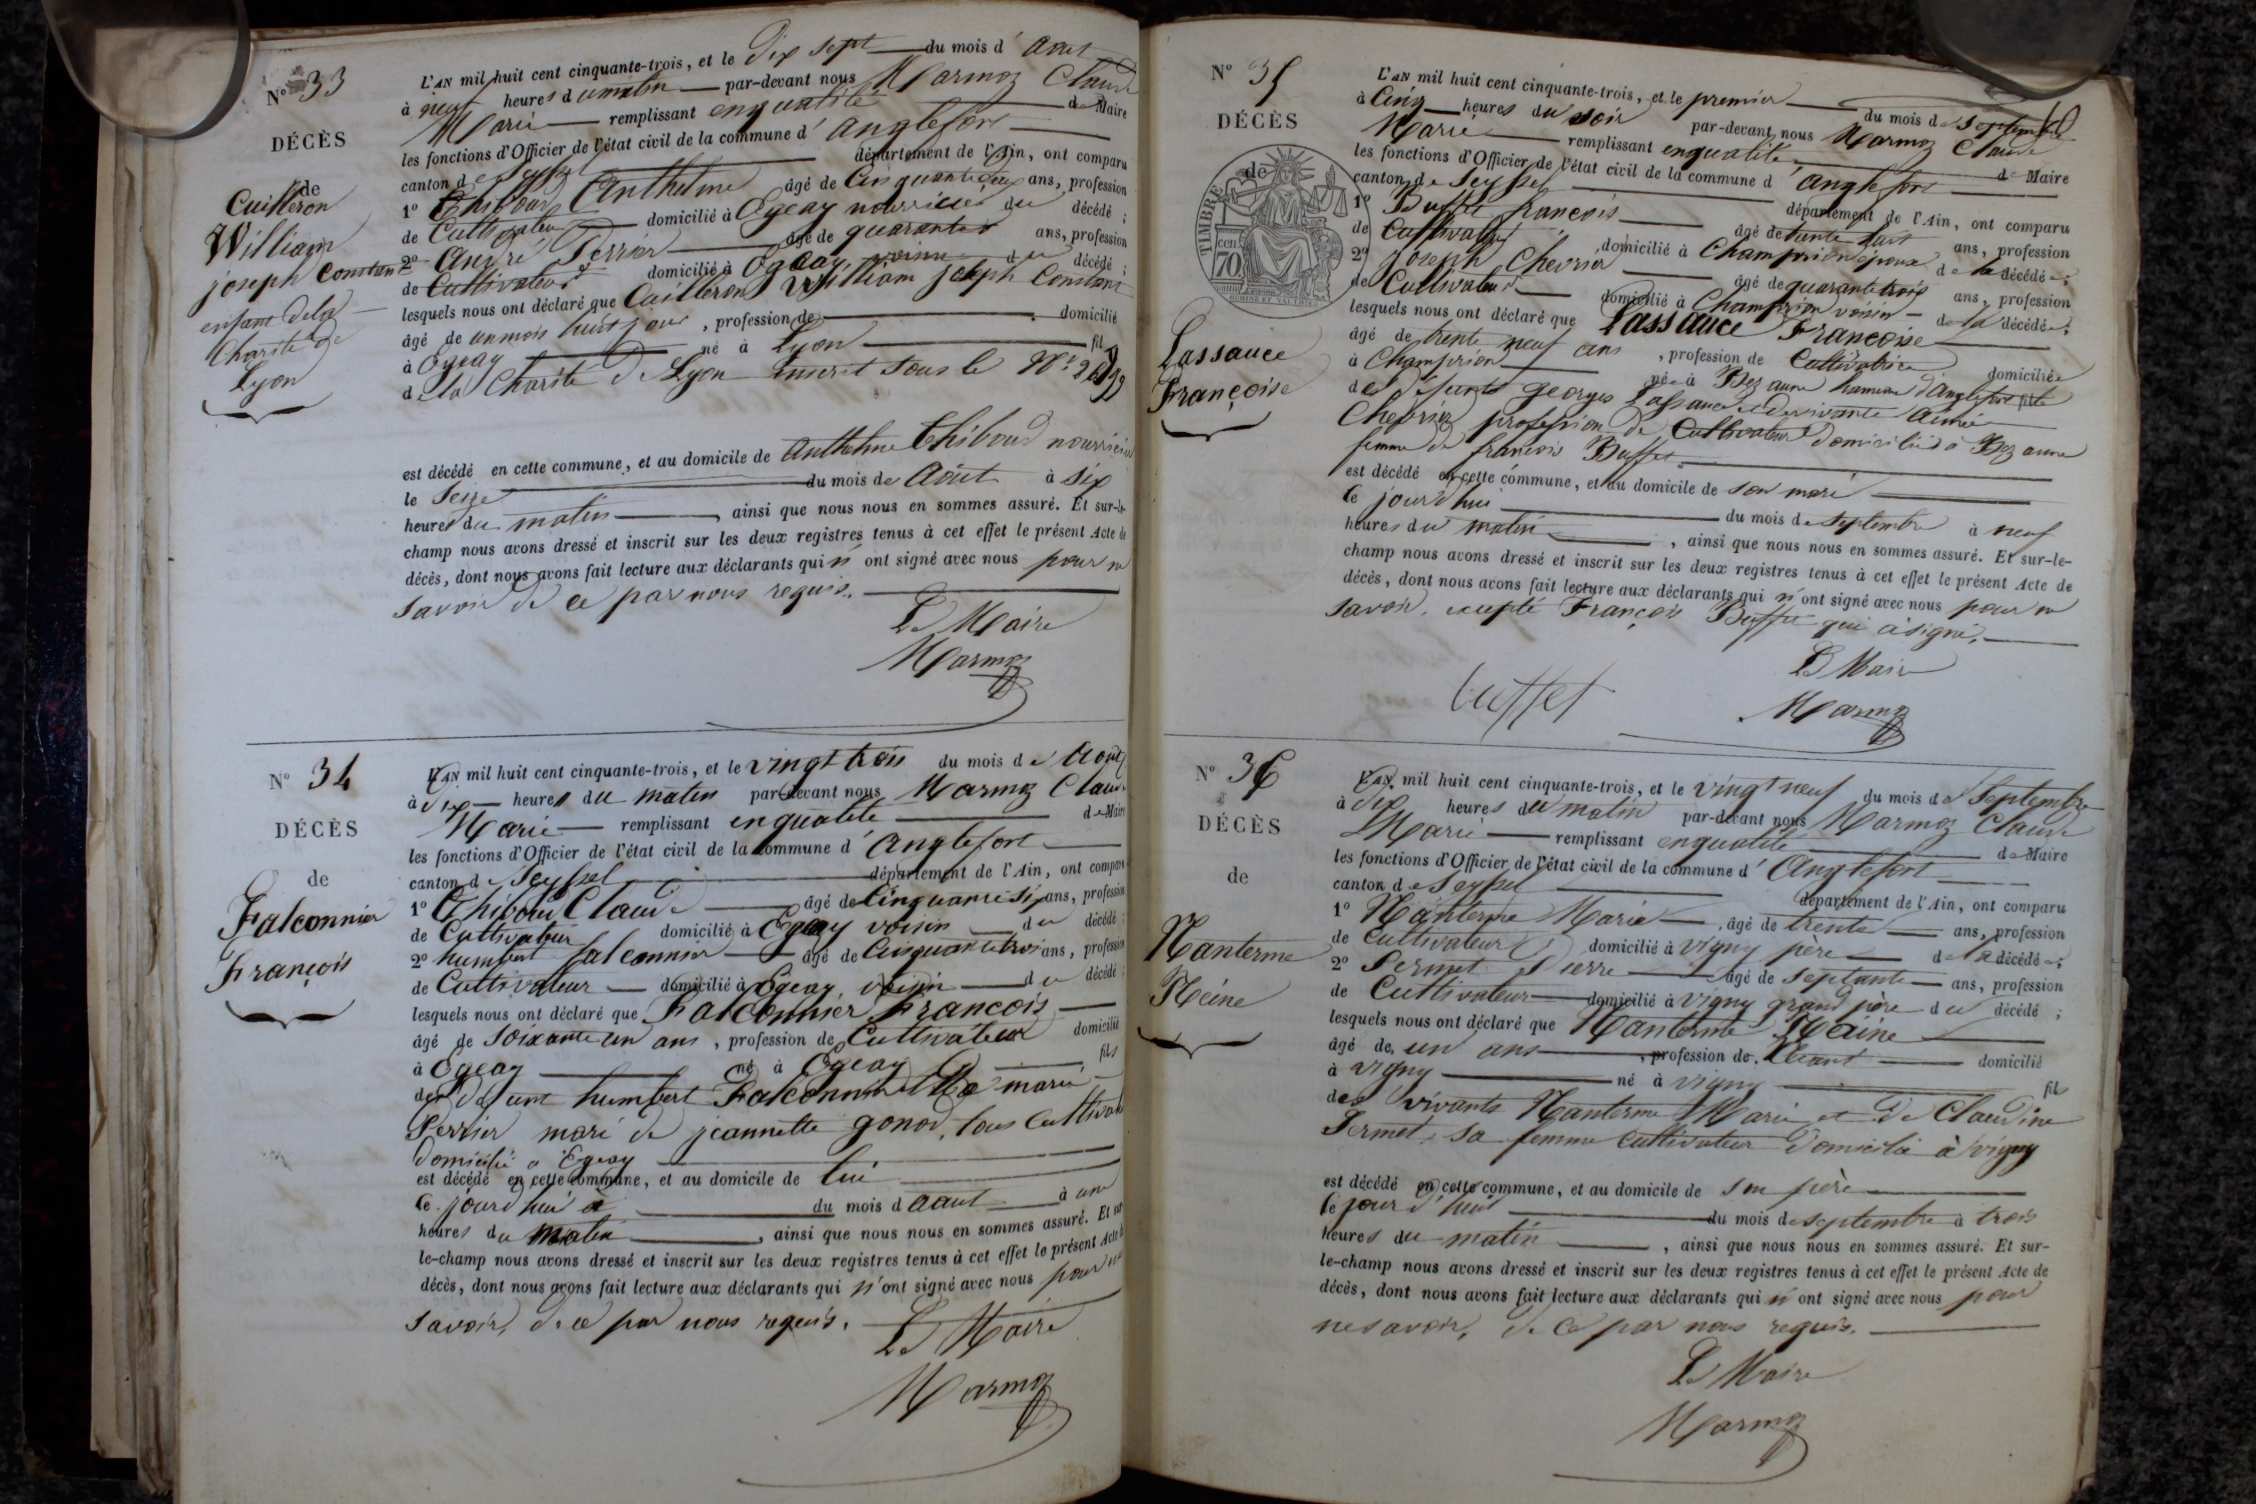 N° 33
DÉCÈS
de
Cuilleron
William
joseph Constant
enfant de la
Charité de
Lyon
L'AN mil huit cent cinquante-trois, et le Dix sept du mois d' Aout
à neuf heures du matin par-devant nous Marmoz Claude
Marie remplissant en qualité de Maire
les fonctions d'Officier de l'état civil de la commune d' Anglefort
canton de Seyssel département de l'Ain, ont comparu
1° Thiboud Anthelme âgé de Cinquante ans, profession
de Cultivateur domicilié à Egeay nourricier du décédé ;
2° André Perrier âgé de quarante ans, profession
de Cultivateur domicilié à Egeay voisin du décédé ;
lesquels nous ont déclaré que Cuilleron William joseph Constant
âgé de un mois huit jour, profession de domicilié
à Egeay né à Lyon fil
de la Charité de Lyon inscrit sous le N°
est décédé en cette commune, et au domicile de Anthelme Thiboud nourricier
le Seize du mois de Août à six
heures du matin, ainsi que nous nous en sommes assuré. Et sur-le-
champ nous avons dressé et inscrit sur les deux registres tenus à cet effet le présent Acte de
décès, dont nous avons fait lecture aux déclarants qui n'ont signé avec nous pour ne
savoir de ce par nous requis.
Le Maire
Marmoz
N° 34
DÉCÈS
de
Falconnier
François
L'AN mil huit cent cinquante-trois, et le vingt trois du mois de Aout
à dix heures du matin par-devant nous Marmoz Claude
Marie remplissant en qualité de Maire
les fonctions d'Officier de l'état civil de la commune d' Anglefort
canton de Seyssel département de l'Ain, ont comparu
1° Thiboud Claude âgé de Cinquante six ans, profession
de Cultivateur domicilié à Egeay voisin du décédé ;
2° humbert falconnier âgé de Cinquante trois ans, profession
de Cultivateur domicilié à Egeay voisin du décédé ;
lesquels nous ont déclaré que Falconnier François
âgé de soixante un ans, profession de Cultivateur domicilié
à Egeay né à Egeay fils
de Défunt humbert Falconnier et de marie
Perrier mari de jeannette gonod, tous Cultivate
domicilié a Egeay
est décédé en cette commune, et au domicile de lui
le jourd'hui à du mois d aout à une
heures du matin, ainsi que nous nous en sommes assuré. Et sur
le-champ nous avons dressé et inscrit sur les deux registres tenus à cet effet le présent Acte de
décès, dont nous avons fait lecture aux déclarants qui n'ont signé avec nous pour ne
savoir, de ce par nous requis.
Le Maire
Marmoz
N° 35
DÉCÈS
de
TIMBRE
70
Lassauce
Françoise
L'AN mil huit cent cinquante-trois, et le premier du mois de Septembre
à Cinq heures du soir par-devant nous Marmoz Claude
Marie remplissant en qualité de Maire
les fonctions d'Officier de l'état civil de la commune d' Anglefort
canton de Seyssel département de l'Ain, ont comparu
1° Buffet françois âgé de trente huit ans, profession
de Cultivateur domicilié à Champrion époux de la décédée ;
2° Joseph Chevrier âgé de quarante trois ans, profession
de Cultivateur domicilié à Champrion voisin de la décédée ;
lesquels nous ont déclaré que Lassauce Françoise
âgé de trente neuf ans, profession de Cultivatrice domiciliée
à Champrion née à Bezanne hameau d'Anglefort fille
des defunts georges Lassauce et de vivante Aimée
Chevrier profession de Cultivateur domicilié à Bezanne
femme de françois Buffet
est décédé en cette commune, et au domicile de son mari
le jourd'hui du mois de septembre à neuf
heures du matin, ainsi que nous nous en sommes assuré. Et sur-le-
champ nous avons dressé et inscrit sur les deux registres tenus à cet effet le présent Acte de
décès, dont nous avons fait lecture aux déclarants qui n'ont signé avec nous pour ne
savoir, excepté François Buffet qui a signé.
Le Maire
buffet
Marmoz
N° 36
DÉCÈS
de
Nanterme
Reine
L'AN mil huit cent cinquante-trois, et le vingt neuf du mois de Septembre
à dix heures du matin par-devant nous Marmoz Claude
Marie remplissant en qualité de Maire
les fonctions d'Officier de l'état civil de la commune d' Anglefort
canton de Seyssel département de l'Ain, ont comparu
1° Nanterme Marie âgé de trente ans, profession
de Cultivateur domicilié à vigny père de la décédée ;
2° Permet Pierre âgé de septante ans, profession
de Cultivateur domicilié à vigny grand père du décédé ;
lesquels nous ont déclaré que Nanterme Reine
âgé de un ans, profession de domicilié
à vigny né à vigny fil
des vivants Nanterme Marie et de Claudine
Permet, sa femme cultivateur domicilié à vigny
est décédé en cette commune, et au domicile de son père
le jour d'hui du mois de septembre à trois
heures du matin, ainsi que nous nous en sommes assuré. Et sur-
le-champ nous avons dressé et inscrit sur les deux registres tenus à cet effet le présent Acte de
décès, dont nous avons fait lecture aux déclarants qui n'ont signé avec nous pour
ne savoir, de ce par nous requis.
Le Maire
Marmoz